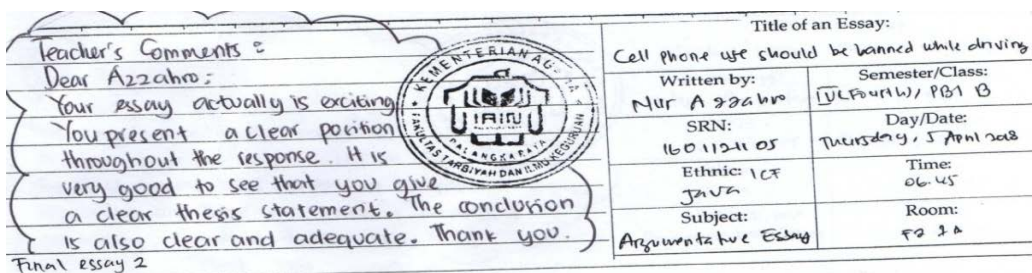 Teacher's Comments :
Dear Azzahro :
Your essay actually is exciting
You present a clear position
throughout the response. It is
very good to see that you give
a clear thesis statement. The conclusion
is also clear and adequate. Thank you.
Final essay 2
KEMENTERIAN AGAMA
IAIN
PALANGKARAYA
FAKULTAS TARBIYAH DAN ILMU KEGURUAN
Title of an Essay:
Cell phone use should be banned while driving
Written by:
Nur Azzahro
Semester/Class:
IV (Fourth), PBI B
SRN:
Day/Date:
Thursday, 5 April 2018
Ethnic:
Java
Time:
06.45
Subject:
Argumentative Essay
Room: